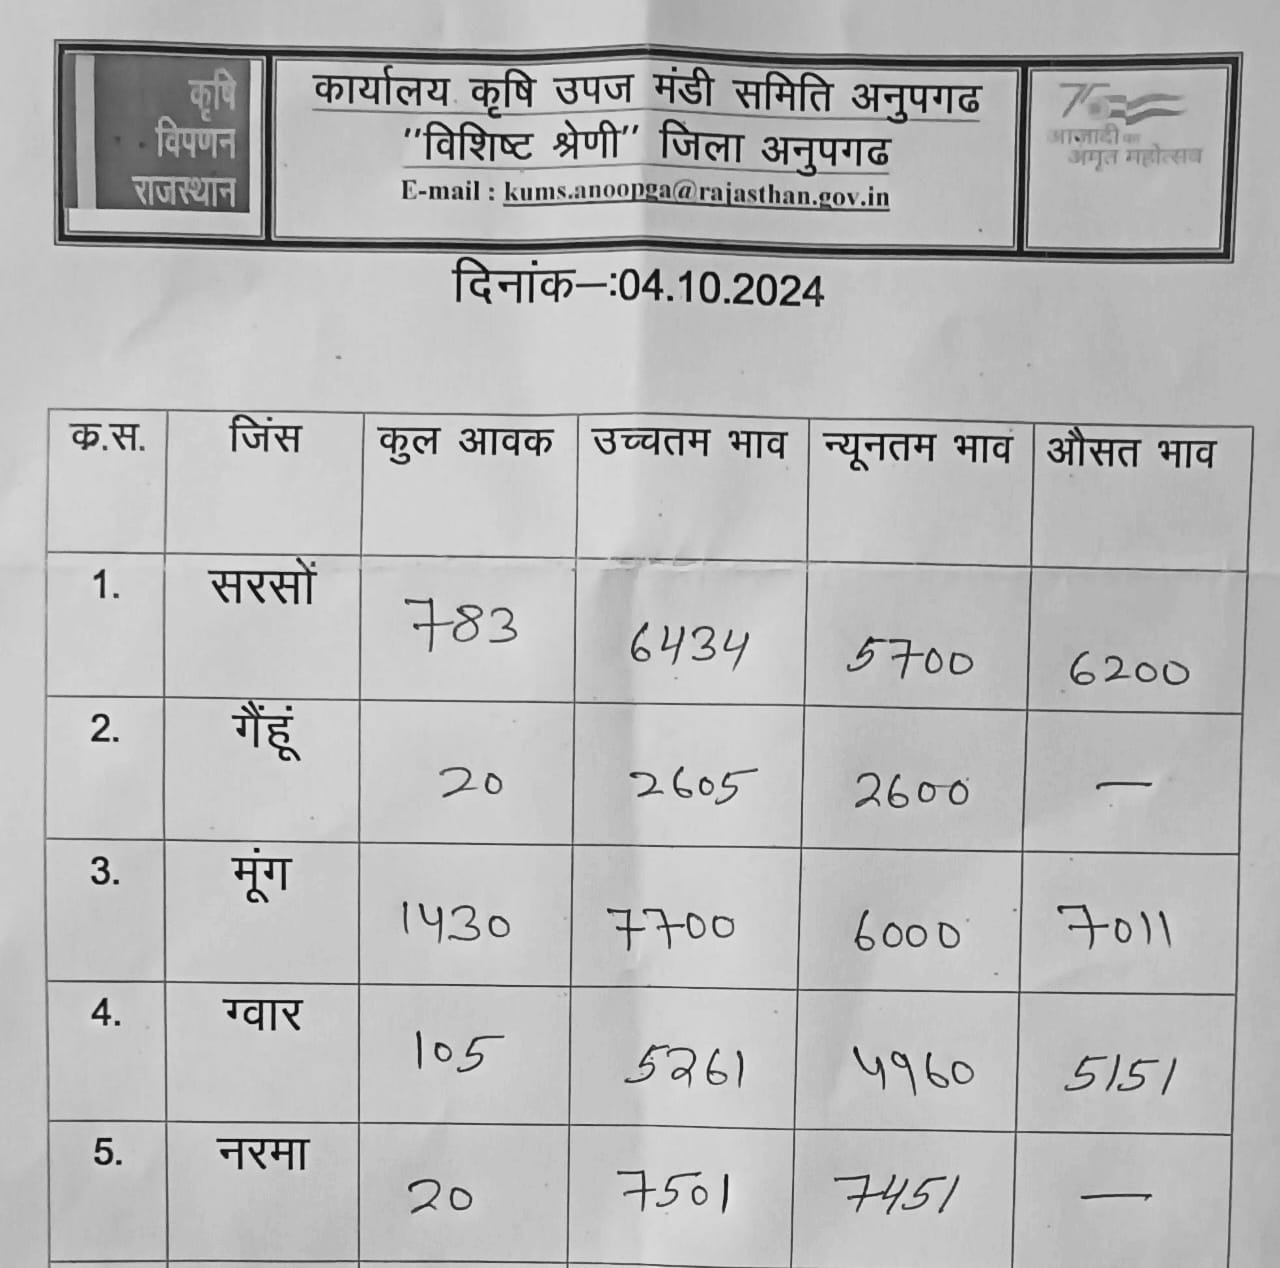 कृषि
विपणन
राजस्थान
कार्यालय कृषि उपज मंडी समिति अनुपगढ
"विशिष्ट श्रेणी" जिला अनुपगढ
E-mail : kums.anoopga@rajasthan.gov.in
75
आज़ादी का
अमृत महोत्सव
दिनांक–:04.10.2024
क्र.स. जिंस कुल आवक उच्चतम भाव न्यूनतम भाव औसत भाव
1. सरसों 783 6434 5700 6200
2. गैंहूं 20 2605 2600 —
3. मूंग 1430 7700 6000 7011
4. ग्वार 105 5261 4960 5151
5. नरमा 20 7501 7451 —